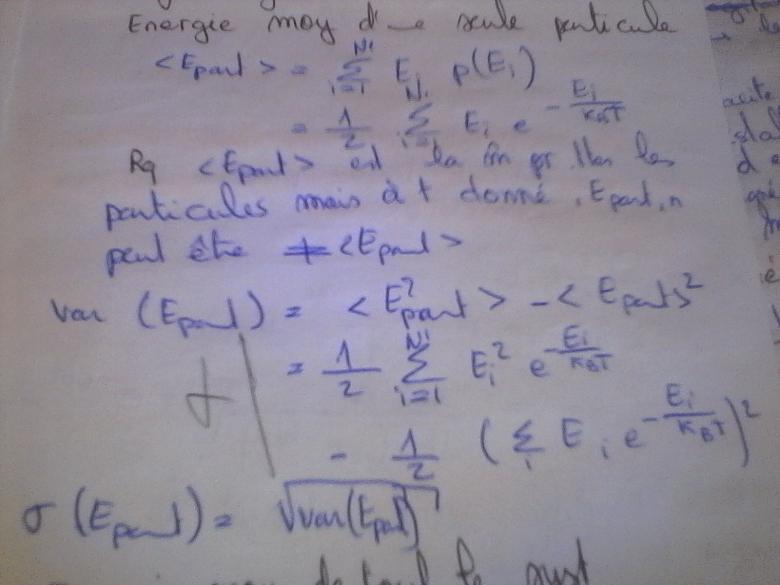 Energie moy d'une seule particule
<E_part> = Σ_{i=1}^{Ni} E_i p(E_i)
= 1/2 Σ_{i=1}^{Ni} E_i e^{-E_i/K_BT}
Rq <E_part> est la m̂ pr ttes les
particules mais à t donné, E_part,n
peut être ≠ <E_part>
Var (E_part) = <E²_part> - <E_part>²
= 1/2 Σ_{i=1}^{Ni} E_i² e^{-E_i/K_BT}
- 1/2 (Σ_i E_i e^{-E_i/K_BT})²
σ (E_part) = √var(E_part)